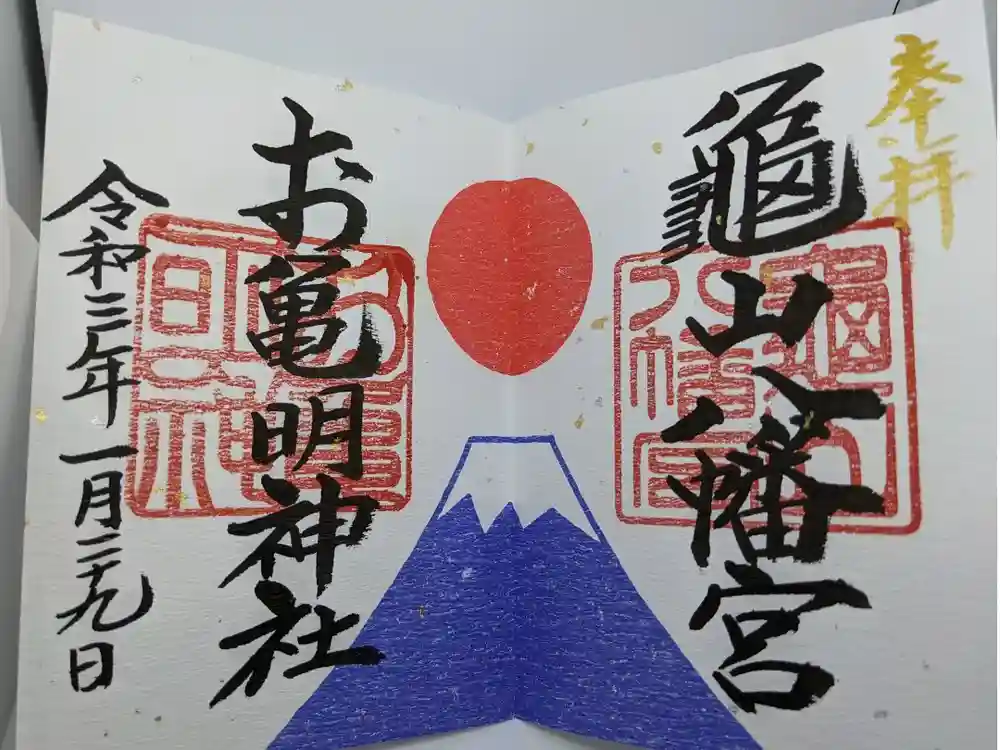 奉拝
龜山八幡宮
お亀明神社
令和三年一月二十九日